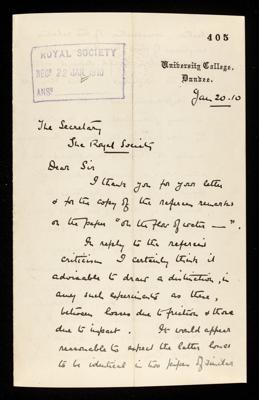 405
ROYAL SOCIETY
REC? 22 JAN. 1910
ANS?
University College,
Dundee.
Jan 20. 10
The Secretary
The Royal Society
Dear Sir
I thank you for your letter
& for the copy of the referees remarks
on the paper "On the flow of water — ".
In reply to the referees
criticism I certainly think it
advisable to draw a distinction, in
any such experiments as these,
between losses due to friction & those
due to impact. It would appear
reasonable to expect the latter losses
to be identical in two pipes of similar